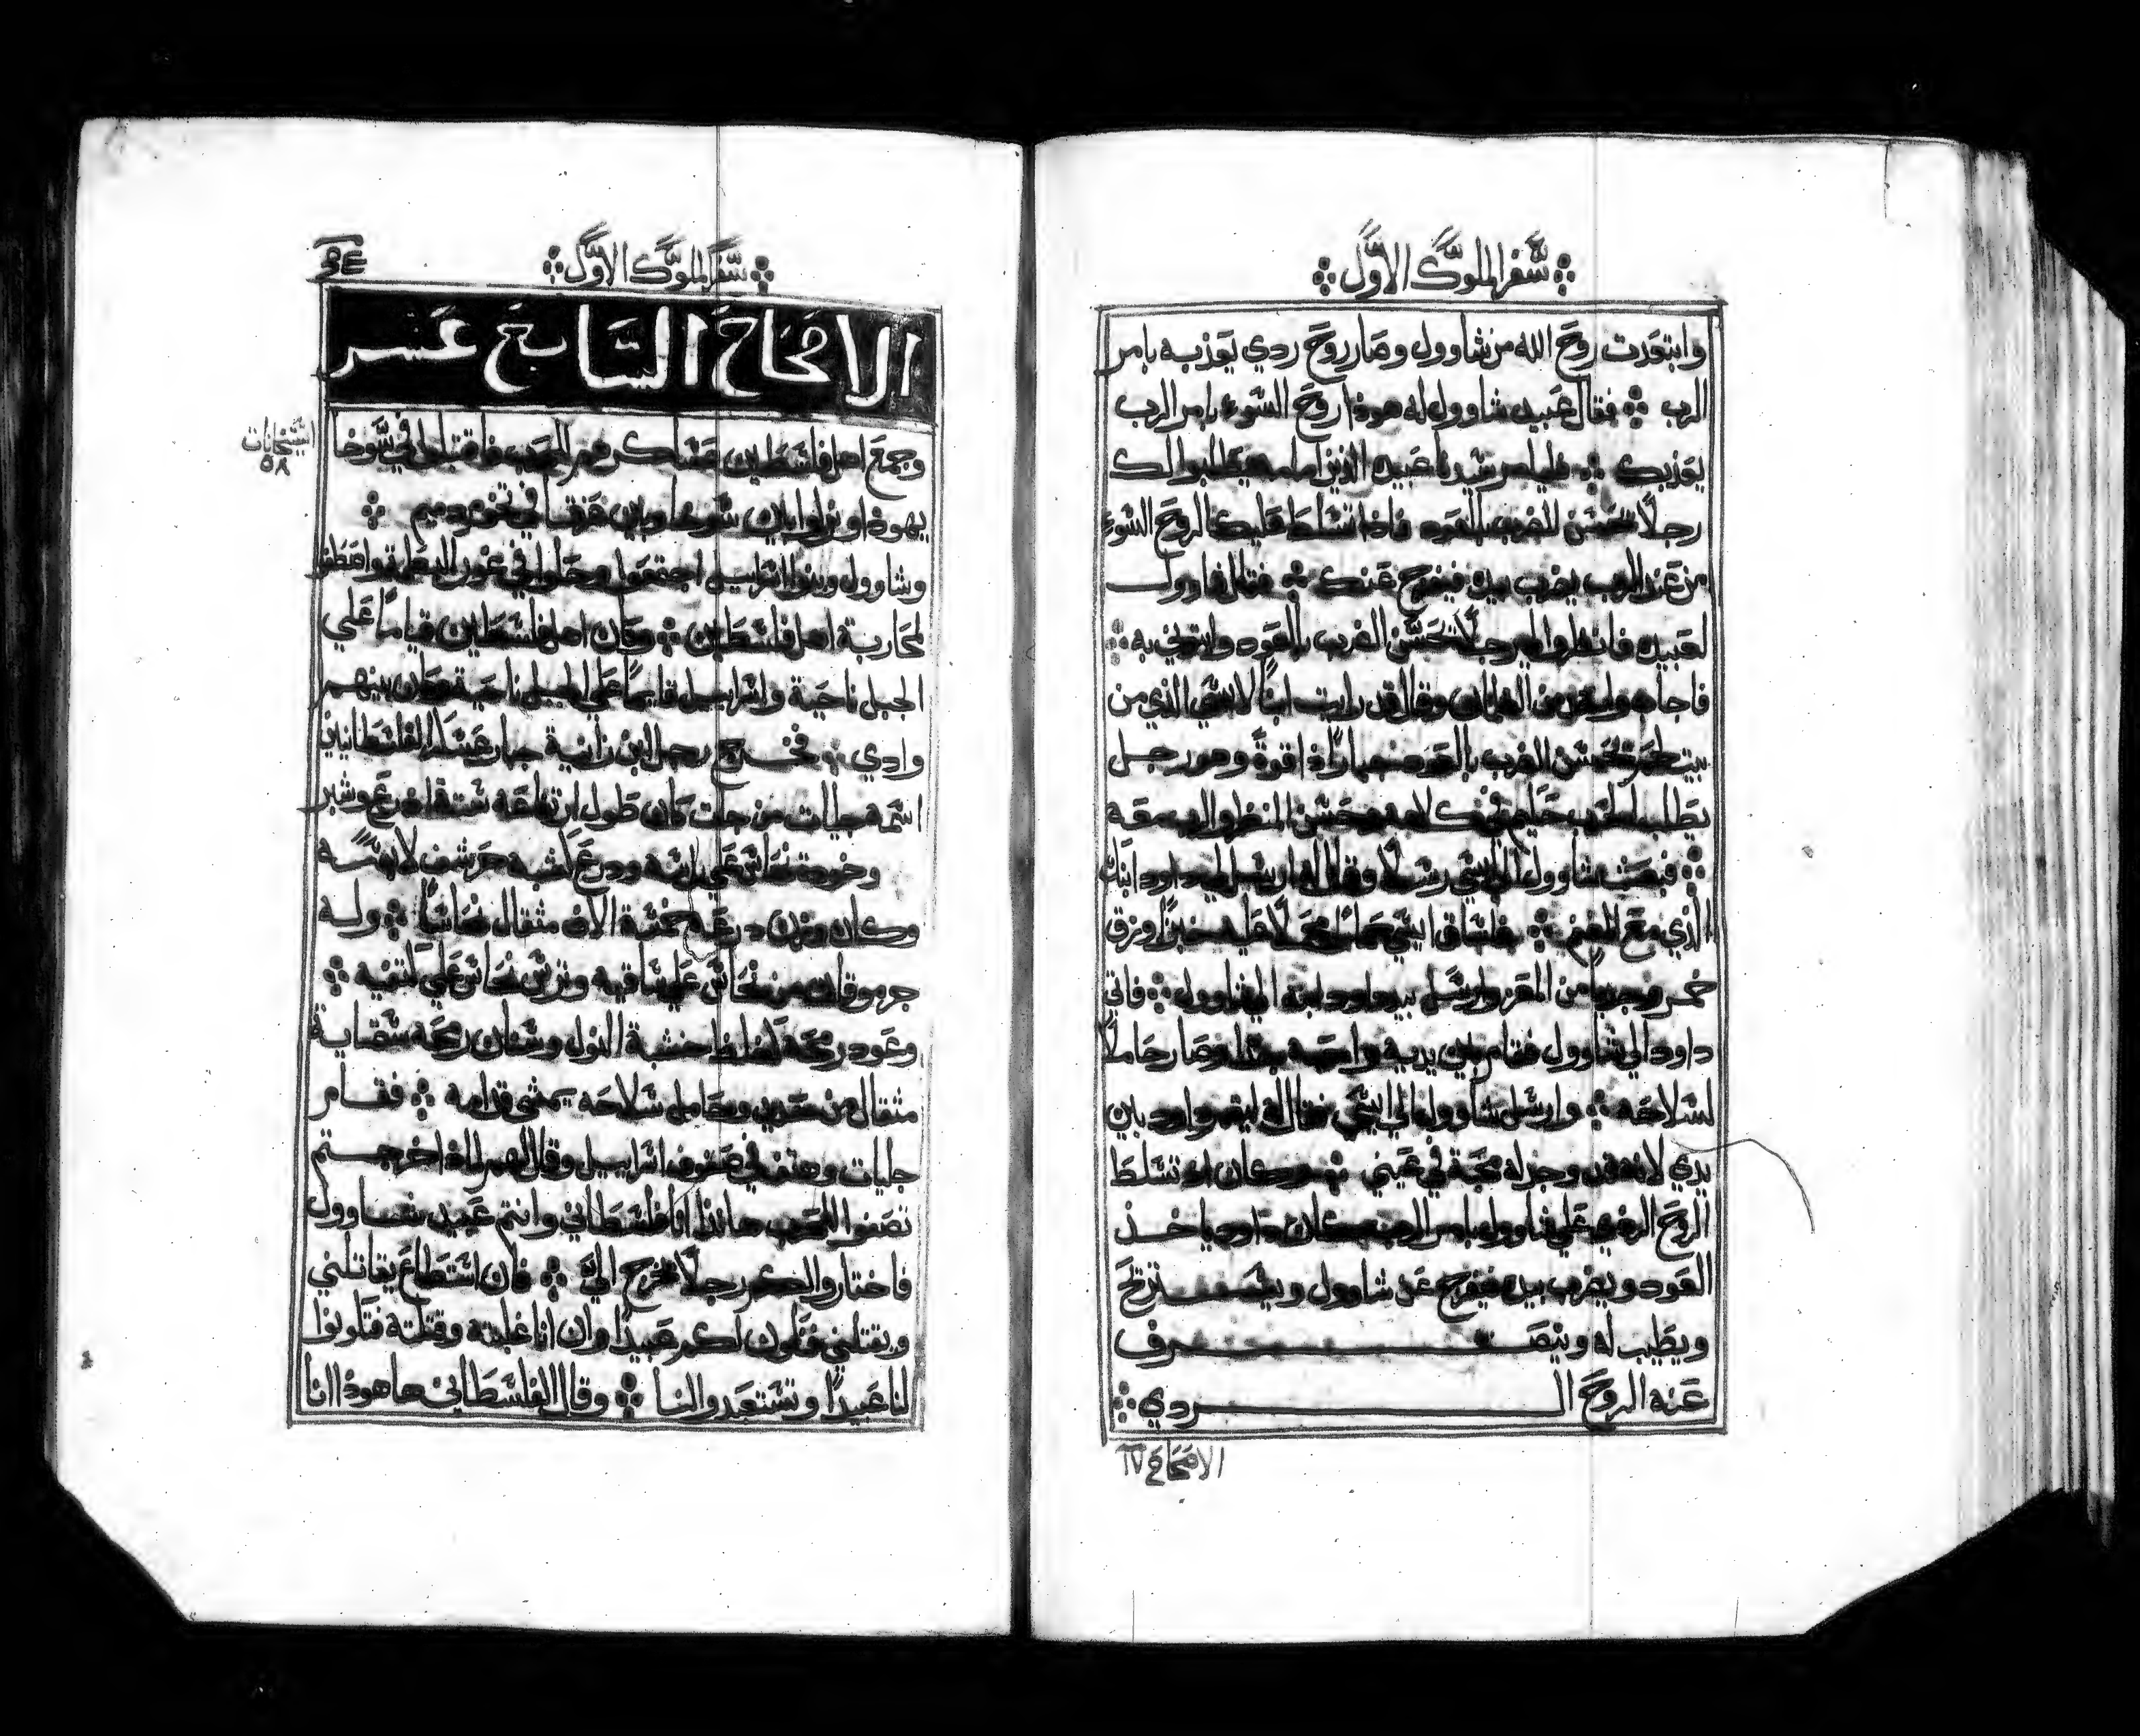 سفر الملوك الاول
وابتعدت روح الله من شاوول وصار روح ردي يعذبه بامر
الرب فقال عبيد شاوول له هوذا روح السوء بامر الرب
يعذبك فليامر سيدنا عبيده الذين امامه يطلبوا لك
رجلا يحسن الضرب بالعود فاذا تسلط عليك الروح السوء
من عند الرب يضرب بيده فيفرج عنك فقال شاوول
لعبيده فانظروا لي رجلا يحسن الضرب بالعود وايتوني به
فاجابه واحد من الغلمان وقال قد رايت ابنا لايسي الذي من
بيت لحم يحسن الضرب بالعود جبارا ذا قوة وهو رجل
بطل حليم في كلامه وحسن المنظر والرب معه
فبعث شاوول الي ايسي رسلا وقال له ارسل لي داود ابنك
الذي مع الغنم فساق ايسي حمارا محملا عليه خبزا وزق
خمر وجديا من المعز وارسل بيد داود ابنه الي شاوول فاتي
داود الي شاوول فقام بين يديه واحبه جدا وصار حاملا
لسلاحه وارسل شاوول الي ايسي فقال له ليقم داود بين
يدي لانه قد وجد له محبة في عيني وكان اذا تسلط
الروح الردي علي شاوول بامر الرب كان داود ياخذ
العود ويضرب بيده فيفرج عن شاوول ويستريح
ويطيب له وينصرف
عنه الروح الردي
الاصحاح ١٧
سفر الملوك الاول
الاصحاح السابع عشر
استيخانات
٥٨
وجمع اهل فلسطين عساكرهم للحرب فاقبلوا في سوخا
يهوذا ونزلوا بين سوخا وبين عزقا في تخوم دميم
وشاوول وبنوا اسراييل اجتمعوا وحلوا في غور البطمة واصطفوا
لمحاربة اهل فلسطين وكان اهل فلسطين قياما علي
الجبل ناحية واسراييل قايما علي الجبل ناحية وكان بينهم
وادي فخرج رجل ابن زانية جبار عسكر الفلسطانيين
اسمه جليات من جات كان طول ارتفاعه ستة اذرع وشبر
وخوذة نحاس علي راسه ودرعا شبه حرشف لابسه
وكان وزن درعه خمسة الاف مثقال نحاسا وله
جرموقان من نحاس علي ساقيه وترس نحاس علي كتفيه
وعود رمحه لغلظ خشبة النول وسنان رمحه ستماية
مثقال من حديد وحامل سلاحه يمشي قدامه فقام
جليات وهتف في صفوف اسراييل وقال لهم لماذا خرجتم
تصفوا للحرب هانذا انا فلسطاني وانتم عبيد شاوول
فاختاروا لكم رجلا يخرج الي فان استطاع يقاتلني
ويقتلني فنكون لكم عبيدا وان انا غلبته وقتلته فتكونوا
لنا عبيدا وتستعبدوا لنا وقال الفلسطاني ها هوذا انا